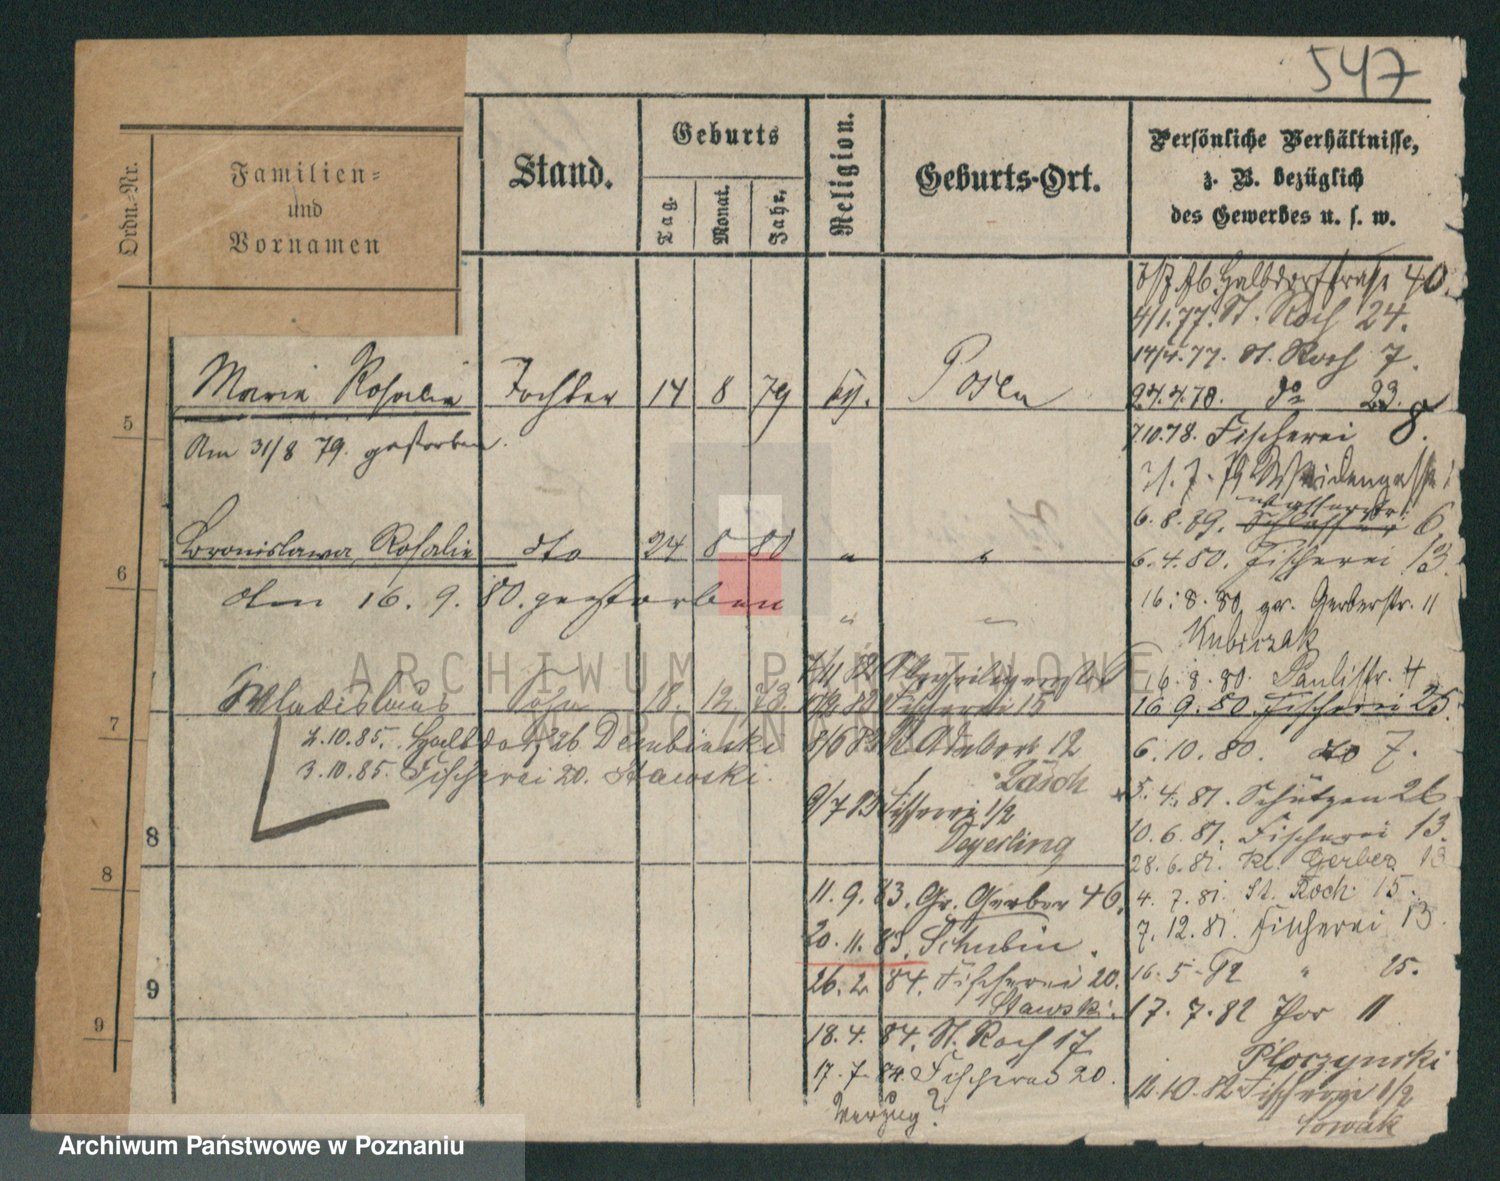 547
Ordn.-Nr.
Familien-
und
Vornamen
Stand.
Geburts
Tag.
Monat.
Jahr.
Religion.
Geburts-Ort.
Persönliche Verhältnisse,
z. B. bezüglich
des Gewerbes u. s. w.
Halbdorfstraße 40.
4/1.77. St. Roch 24.
14/4.77. St. Roch 7.
24.4.78. do 23.
5 Marie Rosalie Tochter 14 8 79 Posen
7.10.78. Fischerei 8.
Am 31/8 79. gestorben.
Weidengasse
6.8.79. 6
6 Bronislawa Rosalie dto 24 8 80 " "
6.4.80. Fischerei 13.
den 16. 9. 80. gestorben
16.8.80 gr. Gerberstr. 11
Kubiczak
16.8.80. Paulistr. 4
7 Wladislaus Sohn 18. 12. 73
Fischerei 15
16.9.80. Fischerei 25.
2.10.85. Halbdorf 26 Dembinski
St. Adalbert 12
6.10.80. do 7.
3.10.85. Fischerei 20. Stawski.
Läsch
5.4.81. Schützen 26
9/7 83 Fischerei 1/2
10.6.81. Fischerei 13.
8 Deyerling
28.6.81. Kl. Gerber 13
8
11.9.83. Gr. Gerber 46.
4.7.81. St. Roch 15.
20.11.83. Schubin.
7.12.81. Fischerei 13.
9
26.2.84. Fischerei 20.
16.5.82 " 25.
Stawski.
17.7.82 Thor 11
9
18.4.84. St. Roch 17
Ploczynski
17.7.84. Fischerei 20.
12.10.82 Fischerei 1/2
Verzug?
Nowak
ARCHIWUM PAŃSTWOWE
W POZNANIU
Archiwum Państwowe w Poznaniu